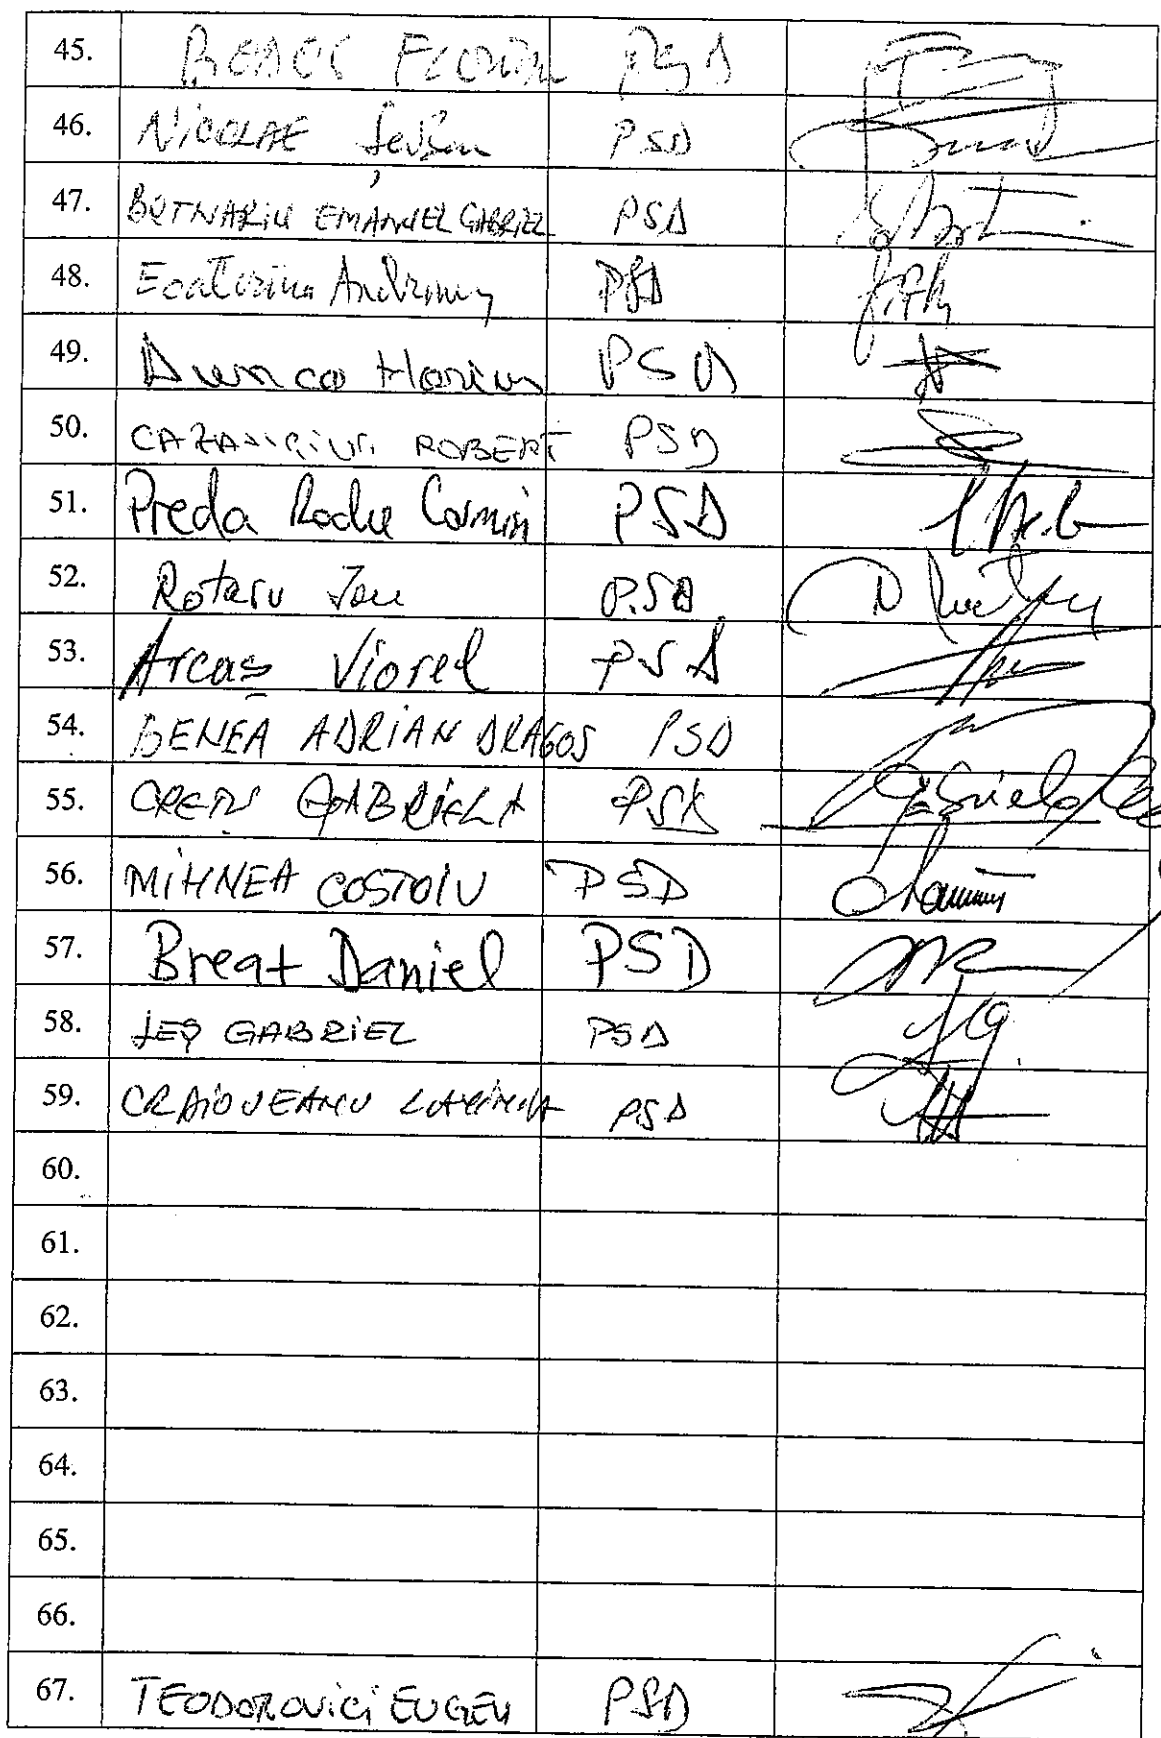 45. Florin PSD
46. NICOLAE Șerban PSD
47. BOTNARIU EMANUEL GABRIEL PSD
48. Ecaterina Andronescu PSD
49. Dunca Marius PSD
50. CAZANCIUC ROBERT PSD
51. Preda Radu Cosmin PSD
52. Rotaru Ion P.SD
53. Arcaș Viorel PSD
54. BENEA ADRIAN DRAGOȘ PSD
55. CREȚU GABRIELA PSD
56. MIHNEA COSTOIU PSD
57. Breaz Daniel PSD
58. LEȘ GABRIEL PSD
59. CRAIOVEANU PSD
60.
61.
62.
63.
64.
65.
66.
67. TEODOROVICI EUGEN PSD